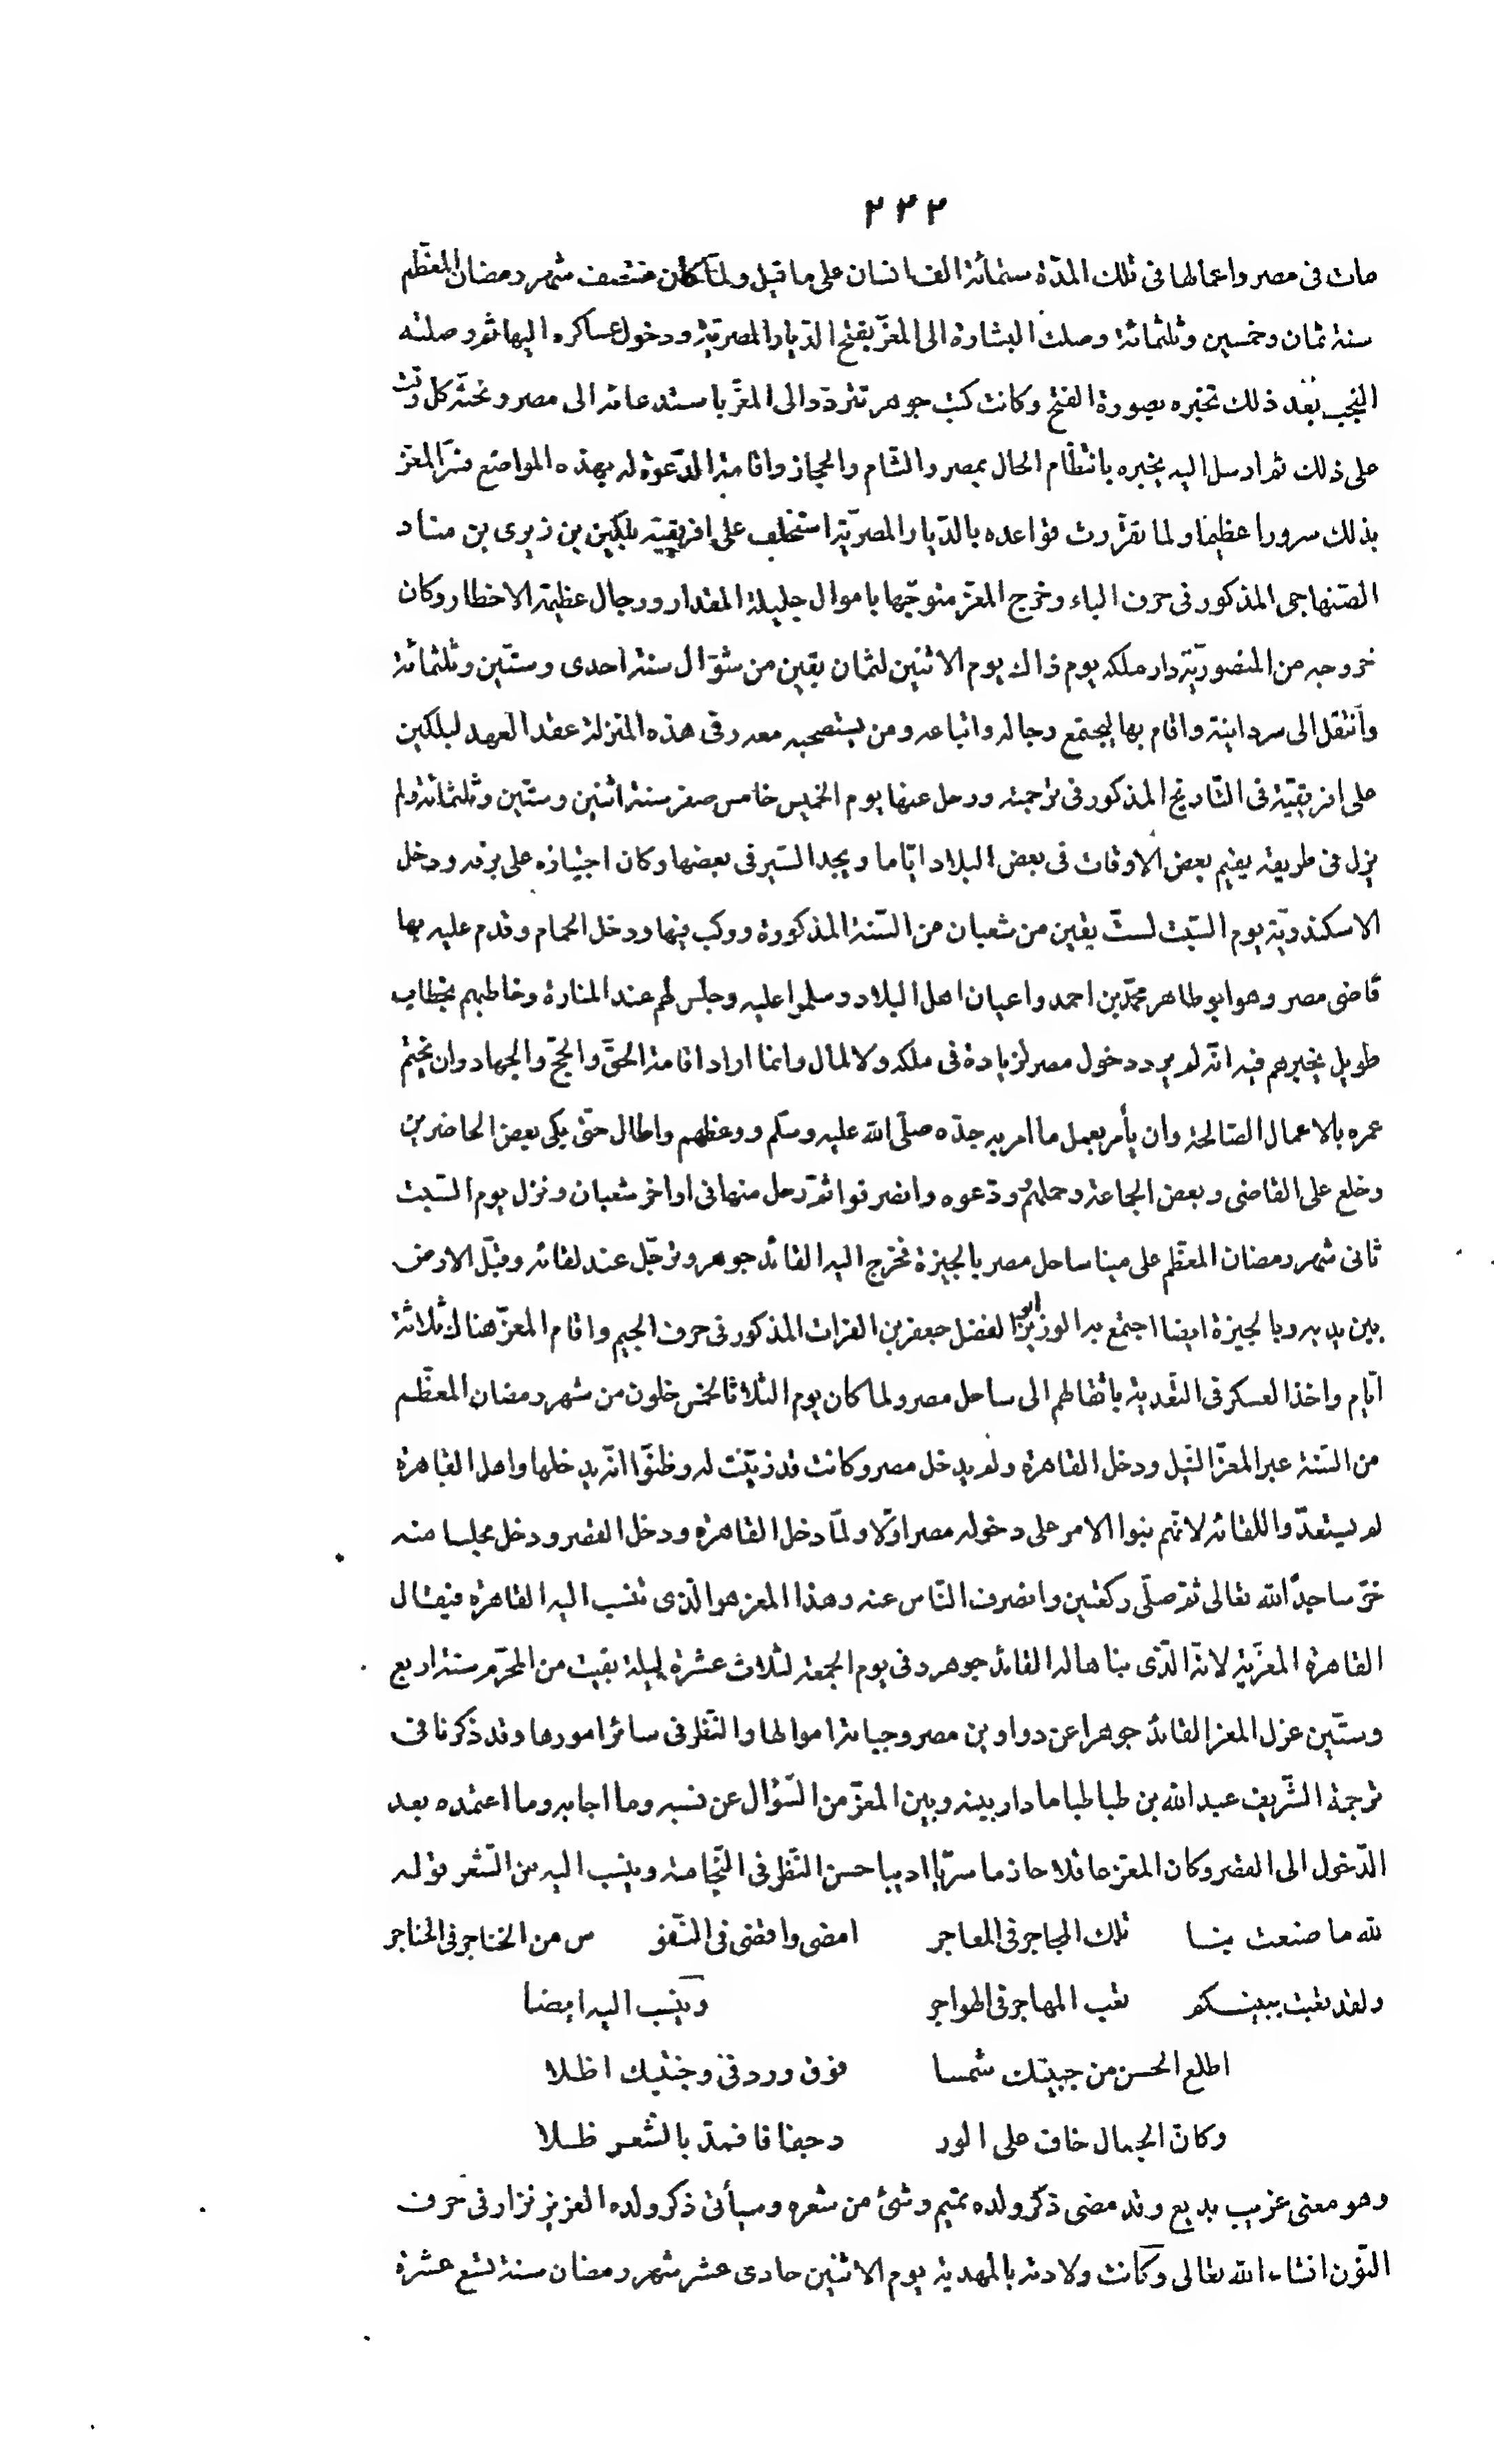 ٢٣٢
مات فى مصر واعمالها فى تلك المدّة ستمائة الف انسان على ما قيل ولمّا كان منتصف شهر رمضان المعظّم
سنة ثمان وخمسين وثلثمائة وصلت البشارة الى المعزّ بفتح الدّيار المصريّة ودخول عساكره اليها ثم وصلته
النجب بعد ذلك تخبره بصورة الفتح وكانت كتب جوهر تتردّد الى المعزّ باستدعائه الى مصر وتحثّه كل وقت
على ذلك ثم ارسل اليه يخبره بانتظام الحال بمصر والشّام والحجاز واقامة الدّعوة له بهذه المواضع فسرّ المعزّ
بذلك سرورا عظيما ولما تقرّرت قواعده بالدّيار المصريّة استخلف على افريقيّة بلكين بن زيرى بن مناد
الصّنهاجى المذكور فى حرف الباء وخرج المعزّ متوجّها باموال جليلة المقدار ورجال عظيمة الاخطار وكان
خروجه من المنصوريّة دار ملكه يوم ذاك يوم الاثنين لثمان بقين من شوّال سنة احدى وستّين وثلثمائة
وانتقل الى سردانية واقام بها ليجتمع رجاله واتباعه ومن يستصحبه معه وفى هذه المنزلة عقد العهد لبلكين
على افريقيّة فى التّاريخ المذكور فى ترجمته ورحل عنها يوم الخميس خامس صفر سنة اثنين وستّين وثلثمائة ولم
يزل فى طريقه يقيم بعض الاوقات فى بعض البلاد ايّاما ويجد السّير فى بعضها وكان اجتيازه على برقه ودخل
الاسكندريّة يوم السّبت لستّ بقين من شعبان من السّنة المذكورة وركب فيها ودخل الحمام وقدم عليه بها
قاضى مصر وهو ابو طاهر محمّد بن احمد واعيان اهل البلاد وسلموا عليه وجلس لهم عند المنارة وخاطبهم بخطاب
طويل يخبرهم فيه انّه لم يرد دخول مصر لزيادة فى ملكه ولا لمال وانما اراد اقامة الحقّ والحجّ والجهاد وان يختم
عمره بالاعمال الصّالحة وان يأمر بعمل ما امر به جدّه صلّى الله عليه وسلّم ووعظهم واطال حتّى بكى بعض الحاضرين
وخلع على القاضى وبعض الجماعة وحملهم وودّعوه وانصرفوا ثمّ رحل منها فى اواخر شعبان ونزل يوم السّبت
ثانى شهر رمضان المعظّم على مينا ساحل مصر بالجيزة فخرج اليه القائد جوهر وترجّل عند لقائه وقبّل الارض
بين يديه وبالجيزة ايضا اجتمع به الوزير ابو الفضل جعفر بن الفرات المذكور فى حرف الجيم واقام المعزّ هناك ثلاثة
ايّام واخذ العسكر فى التّعدية باثقالهم الى ساحل مصر ولما كان يوم الثلاثا لخمس خلون من شهر رمضان المعظّم
من السّنة عبر المعزّ النّيل ودخل القاهرة ولم يدخل مصر وكانت قد زيّنت له وظنّوا انّه يدخلها واهل القاهرة
لم يستعدّوا للقائه لانّهم بنوا الامر على دخوله مصر اوّلا ولمّا دخل القاهرة ودخل القصر ودخل مجلسا منه
خرّ ساجدًا لله تعالى ثمّ صلّى ركعتين وانصرف النّاس عنه وهذا المعز هو الّذى تنسب اليه القاهرة فيقال
القاهرة المعزّيّة لانّه الّذى بناها له القائد جوهر وفى يوم الجمعة لثلاث عشرة ليلة بقيت من المحرّم سنة اربع
وستّين عزل المعز القائد جوهرا عن دواوين مصر وجباية اموالها والنّظر فى سائر امورها وقد ذكرنا فى
ترجمة الشّريف عبد الله بن طباطبا ما دار بينه وبين المعزّ من السّؤال عن نسبه وما اجابه وما اعتمده بعد
الدّخول الى القصر وكان المعزّ عاقلا حازما سريّا اديبا حسن النّظر فى النّجامة وينسب اليه من الشّعر قوله
لله ما صنعت بنا تلك المحاجر فى المعاجر امضى واقضى فى النّفو س من الخناجر فى الحناجر
ولقد تعبت ببينكم تعب المهاجر فى الهواجر وينسب اليه ايضا
اطلع الحسن من جبينك شمسا فوق ورد فى وجنتيك اظلا
وكانّ الجمال خاف على الور د جفافا فمدّ بالشعر ظلا
وهو معنى غريب بديع وقد مضى ذكر ولده تميم وشئ من شعره وسيأتى ذكر ولده العزيز نزار فى حرف
النّون انشاء الله تعالى وكانت ولادته بالمهدية يوم الاثنين حادى عشر شهر رمضان سنة تسع عشرة